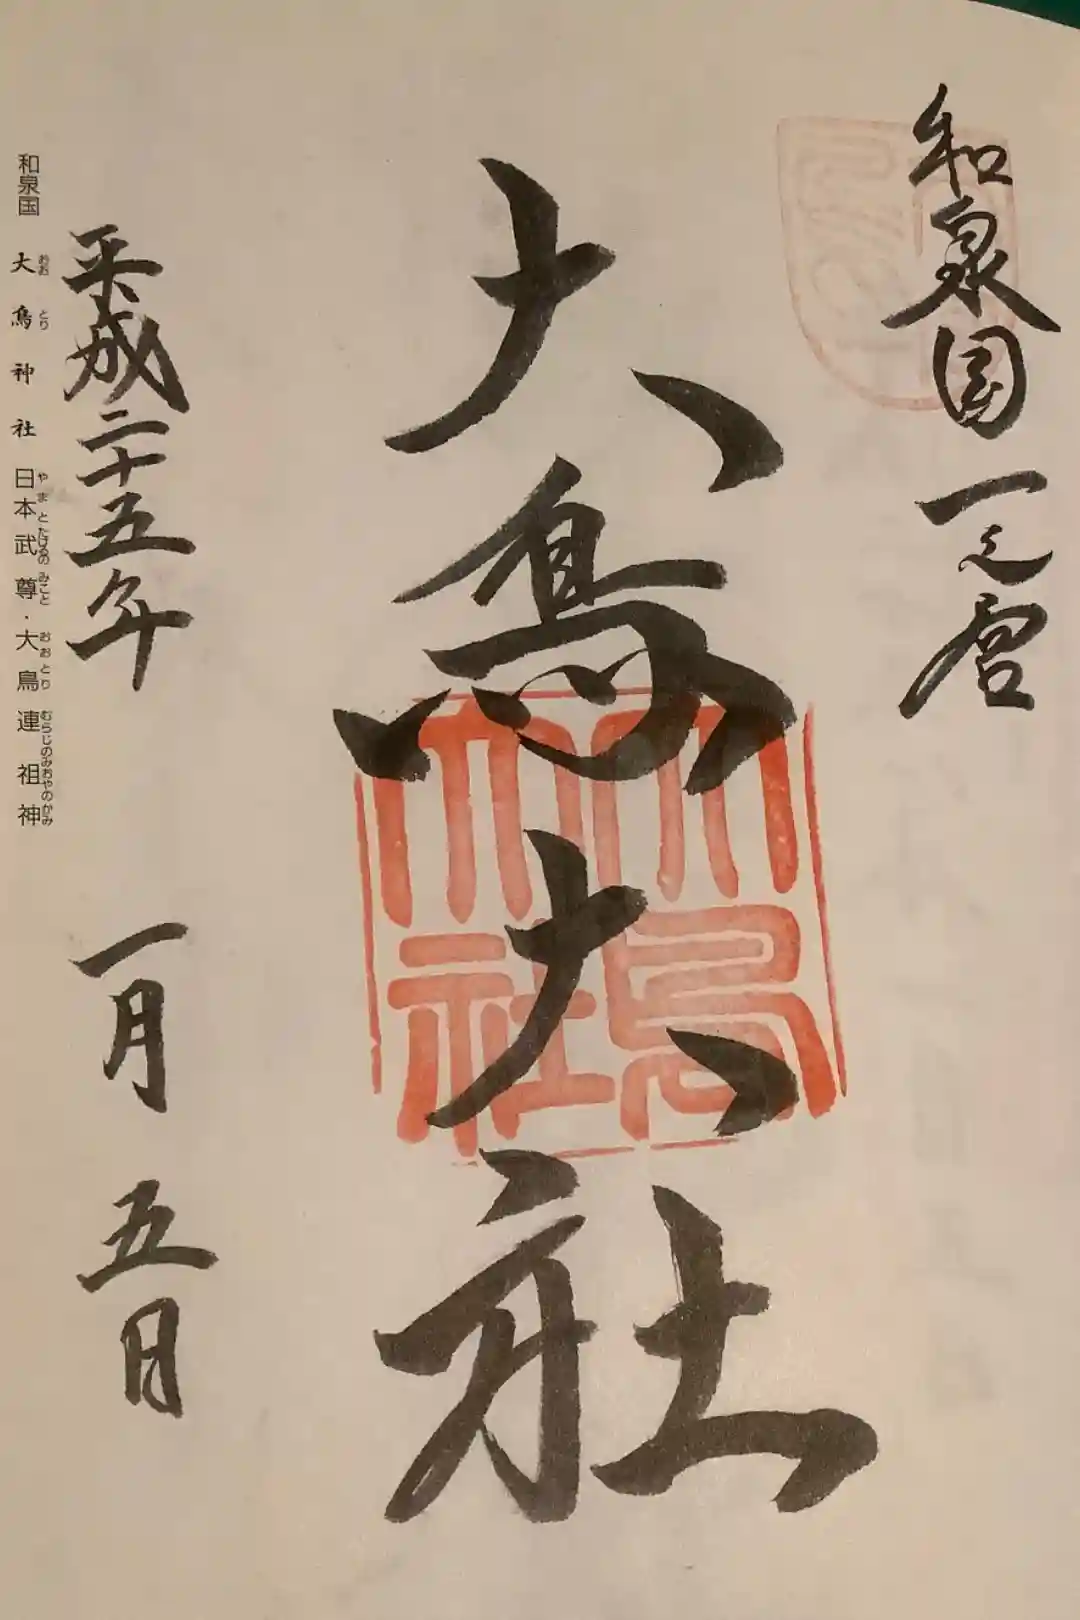 和泉国一之宮
大鳥大社
大鳥大社
平成二十五年 一月 五日
和泉国 大鳥神社 日本武尊・大鳥連祖神
おおとり やまとたけるのみこと おおとりむらじのみおやのかみ